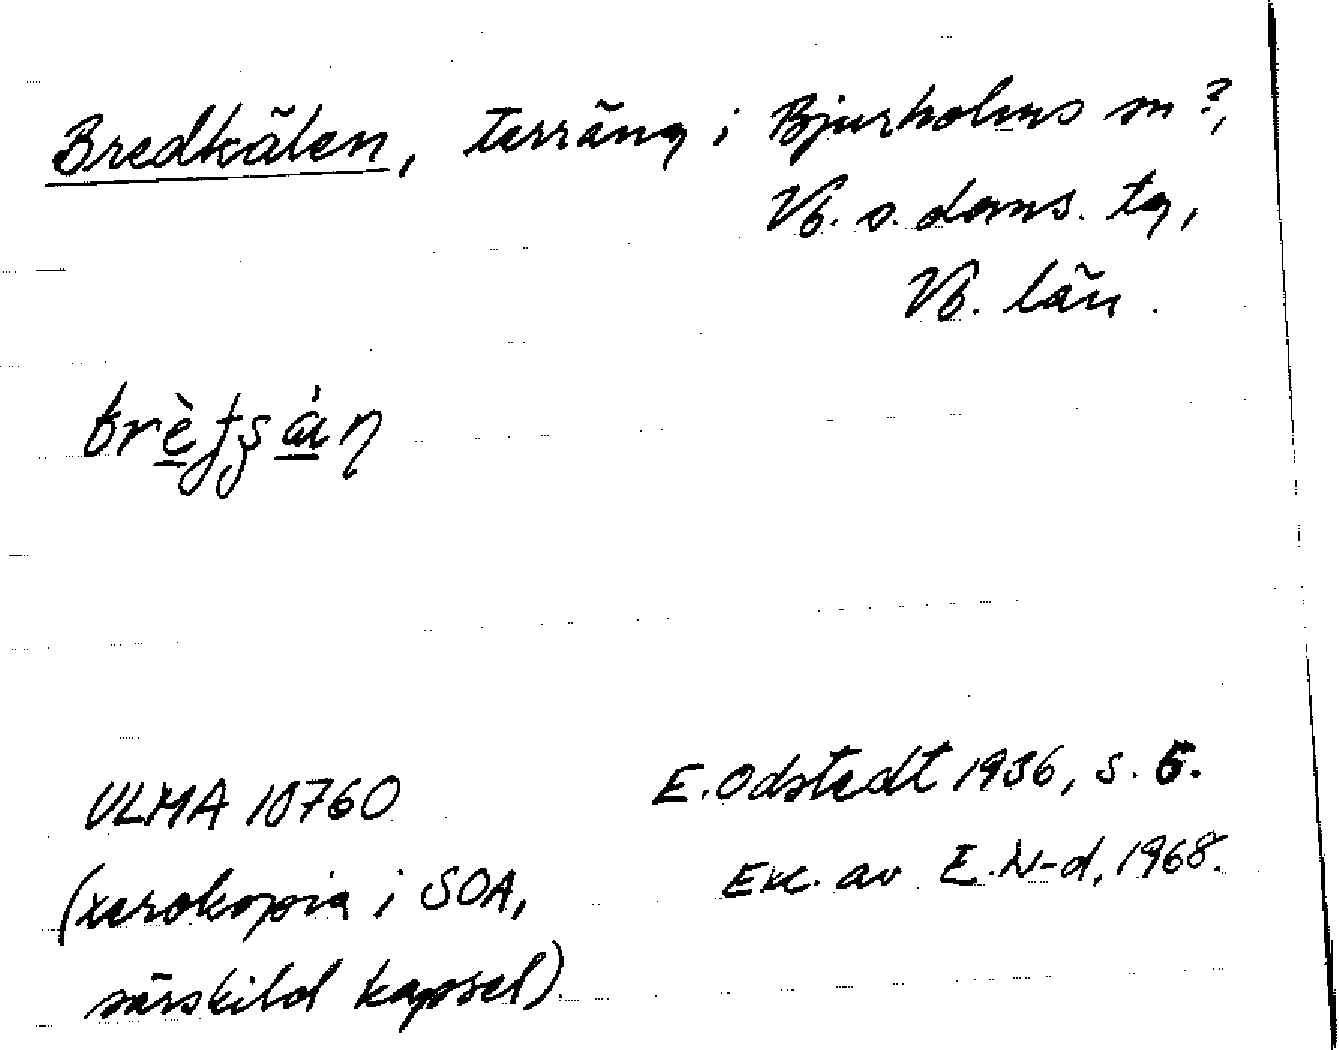 Bredkälen, terräng i Bjurholms sn?,
Vb. s. doms. tg,
Vb. län.
ULMA 10760
E. Odstedt 1936, s. 5.
(xerokopia i SOA,
Exc. av E. N-d, 1968.
särskild kapsel).